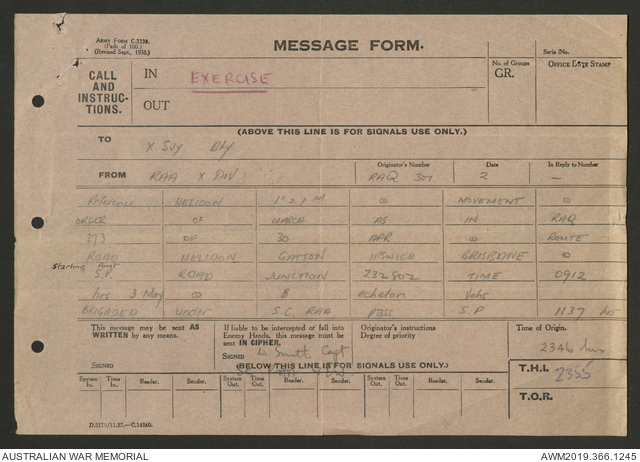 ARMY FORM C.2138.
(Pads of 100.)
(Revised Sept., 1936.)
MESSAGE FORM.
Serial No.
CALL AND INSTRUC-TIONS.
IN EXERCISE
OUT
No. of Groups
GR.
OFFICE DATE STAMP
(ABOVE THIS LINE IS FOR SIGNALS USE ONLY.)
TO X Svy Bty
FROM RAA X DIV
Originator's Number
RAQ 301
Date
2
In Reply to Number
—
Reference HELIDON 1" 2 1 M MOVEMENT
ORDER OF MARCH AS IN RAQ
273 OF 30 APR ROUTE
ROAD HELIDON GATTON IPSWICH BRISBANE
Starting Point
S.P. ROAD JUNCTION 232802 TIME 0912
hrs 3 May B echelon Vehs
BRIGADED under S.C. RAA pass S P 1137 hrs
This message may be sent AS WRITTEN by any means.
SIGNED
If liable to be intercepted or fall into Enemy Hands, this message must be sent IN CIPHER.
SIGNED D. Smith Capt
Originator's instructions
Degree of priority
Time of Origin.
2346 hrs
(BELOW THIS LINE IS FOR SIGNALS USE ONLY.)
T.H.I. 2355
T.O.R.
System In. Time In. Reader. Sender. System Out. Time Out. Reader. Sender. System Out. Time Out. Reader. Sender.
D.2170/11.37.—C.14240.
AUSTRALIAN WAR MEMORIAL
AWM2019.366.1245